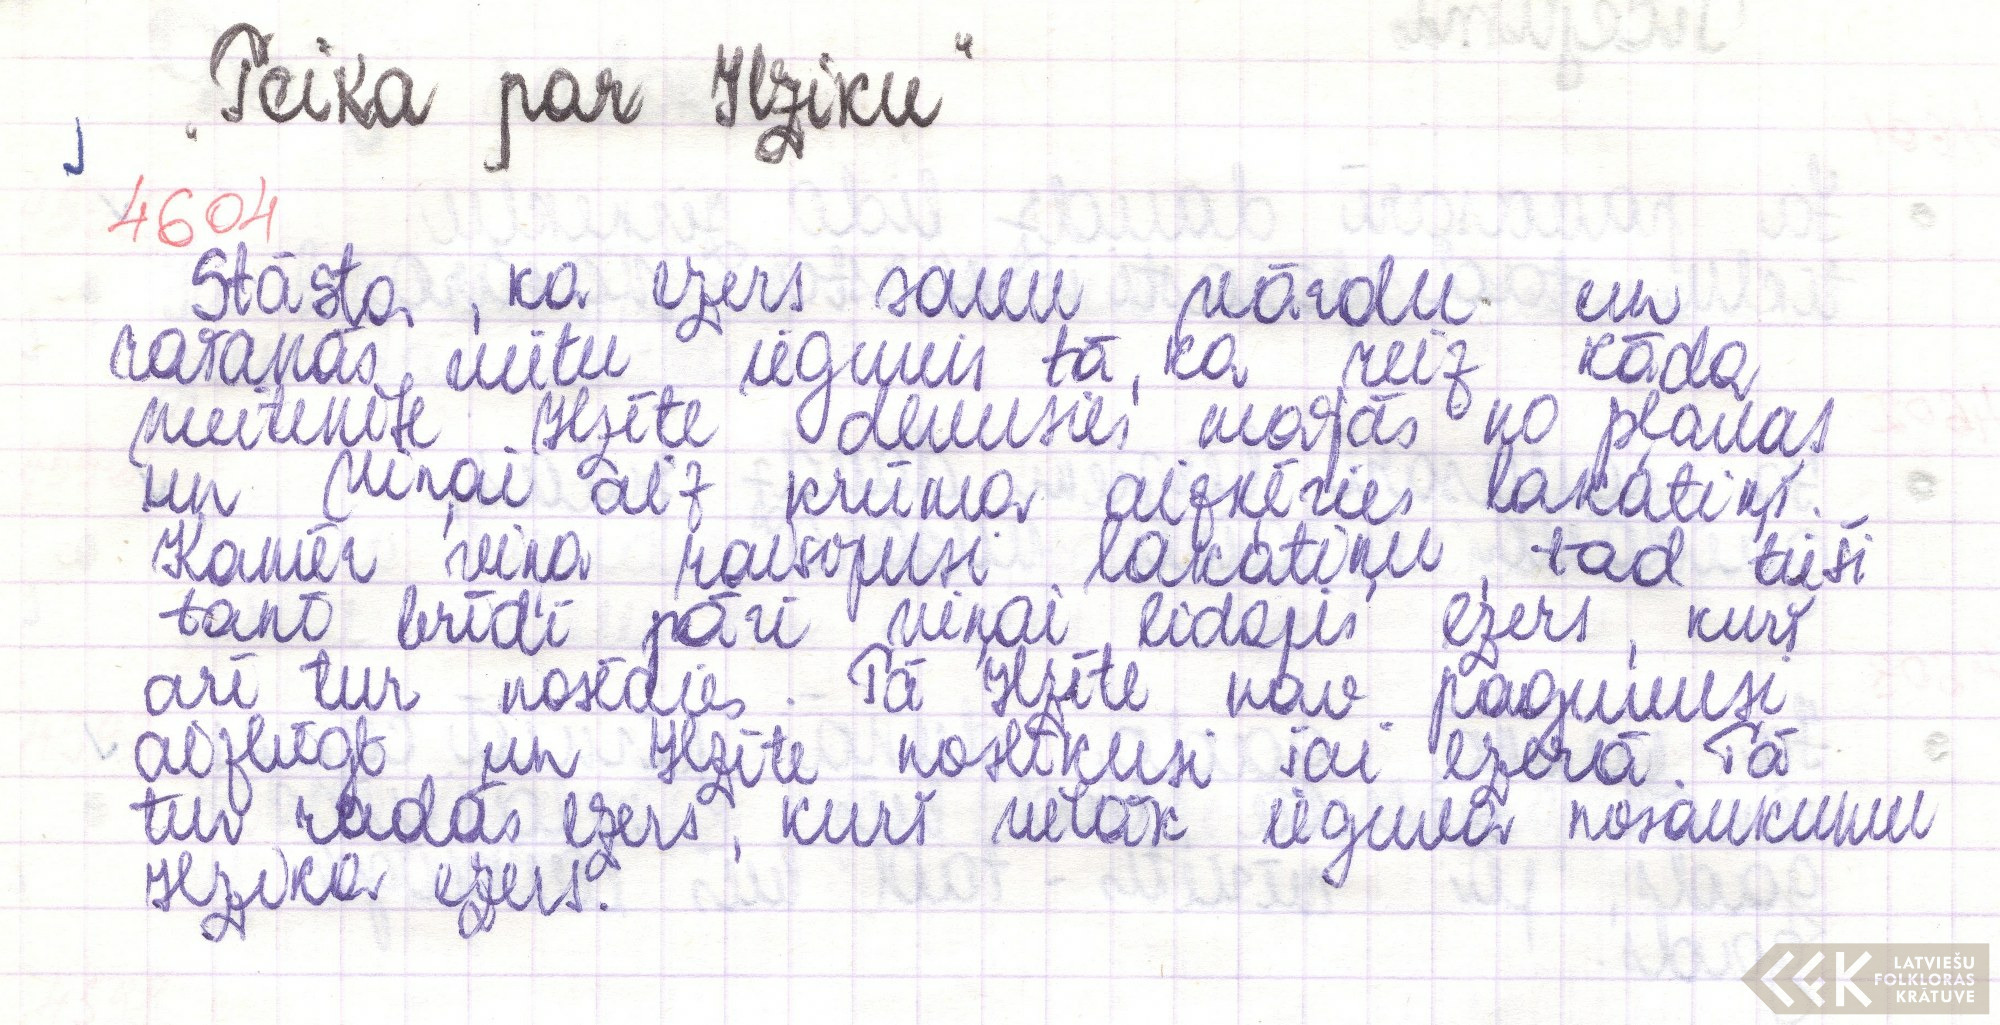 „Teika par Ilziku"
4604
Stāsta, ka ezers savu vārdu un
rašanās vietu ieguvis tā, ka reiz kāda
meitenīte Ilzīte devusies mājās no pļavas
un viņai aiz krūma aizķēries lakatiņš.
Kamēr viņa raisījusi lakatiņu, tad tieši
tanī brīdī pāri viņai lidojis ezers, kurš
arī tur nosēdies. Tā Ilzīte nav paguvusi
aizbēgt un Ilzīte noslīkusi šai ezerā. Tā
tur radās ezers, kurš vēlāk ieguva nosaukumu
Ilzika ezers.
LATVIEŠU
FOLKLORAS
KRĀTUVE